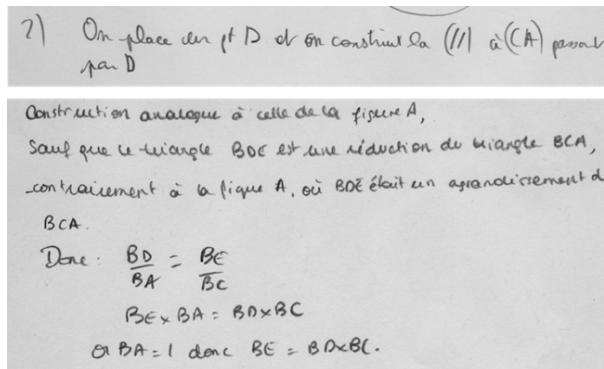 2) On place un pt D et on construit la (//) à (CA) passant
par D
Construction analogue à celle de la figure A,
Sauf que le triangle BDE est une réduction du triangle BCA,
contrairement à la figure A, où BDE était un agrandissement d
BCA.
Donc : BD/BA = BE/BC
BE x BA = BD x BC
Or BA = 1 donc BE = BD x BC.